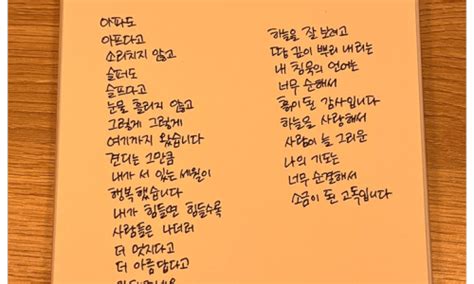 아파도
아프다고
소리치지 않고
슬퍼도
슬프다고
눈물 흘리지 않고
그렇게 그렇게
여기까지 왔습니다
견디는 그만큼
내가 서 있는 세월이
행복했습니다
내가 힘들면 힘들수록
사람들은 나더러
더 멋지다고
더 아름답다고
하늘을 잘 보려고
땅 깊이 뿌리 내리는
내 침묵의 언어는
너무 순해서
흙이 된 감사입니다
하늘을 사랑해서
사람이 늘 그리운
나의 기도는
너무 순결해서
소금이 된 고독입니다